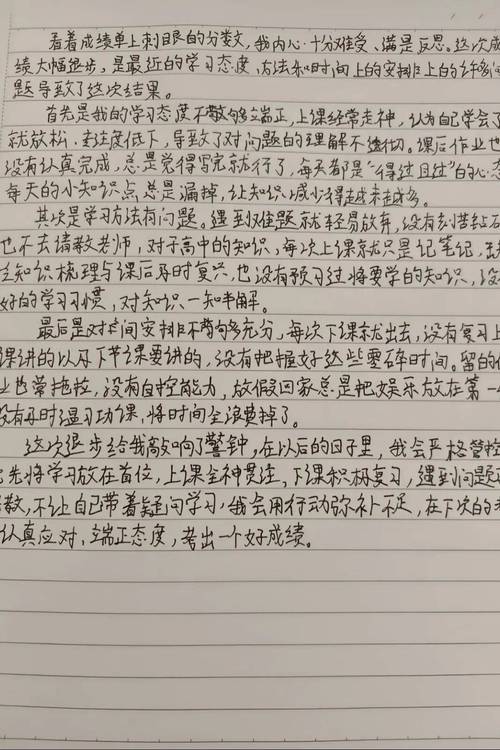 看着成绩单上刺眼的分数,我内心十分难受、满是反思。这次成
绩大幅退步,是最近的学习态度、方法和时间上的安排上的许多问
题导致了这次结果。
首先是我的学习态度不够端正,上课经常走神,认为自己学会了
就放松、专注度低下,导致了对问题的理解不透彻。课后作业也
没有认真完成,总是觉得写完就行了,每天都是“得过且过”的心态
每天的小知识点总是漏掉,让知识减少得越来越多。
其次是学习方法有问题。遇到难题就轻易放弃,没有刻苦钻石
也不去请教老师,对于高中的知识,每次上课就只是记笔记,
知识梳理与课后及时复兴,也没有预习过将要学的知识,没
好的学习习惯,对知识一知半解。
最后是对时间安排不够充分,每次下课就出去,没有复习上
课讲的以及下节课要讲的,没有把握好这些零碎时间。留的作
业也常拖拉,没有自控能力,放假回家总是把娱乐放在第一
没有及时温习功课,将时间全浪费掉了。
这次退步给我敲响了警钟,在以后的日子里,我会严格管控
先将学习放在首位,上课全神贯注,下课积极复习,遇到问题
教,不让自己带着疑问学习,我会用行动弥补不足,在下次的考
认真应对,端正态度,考出一个好成绩。